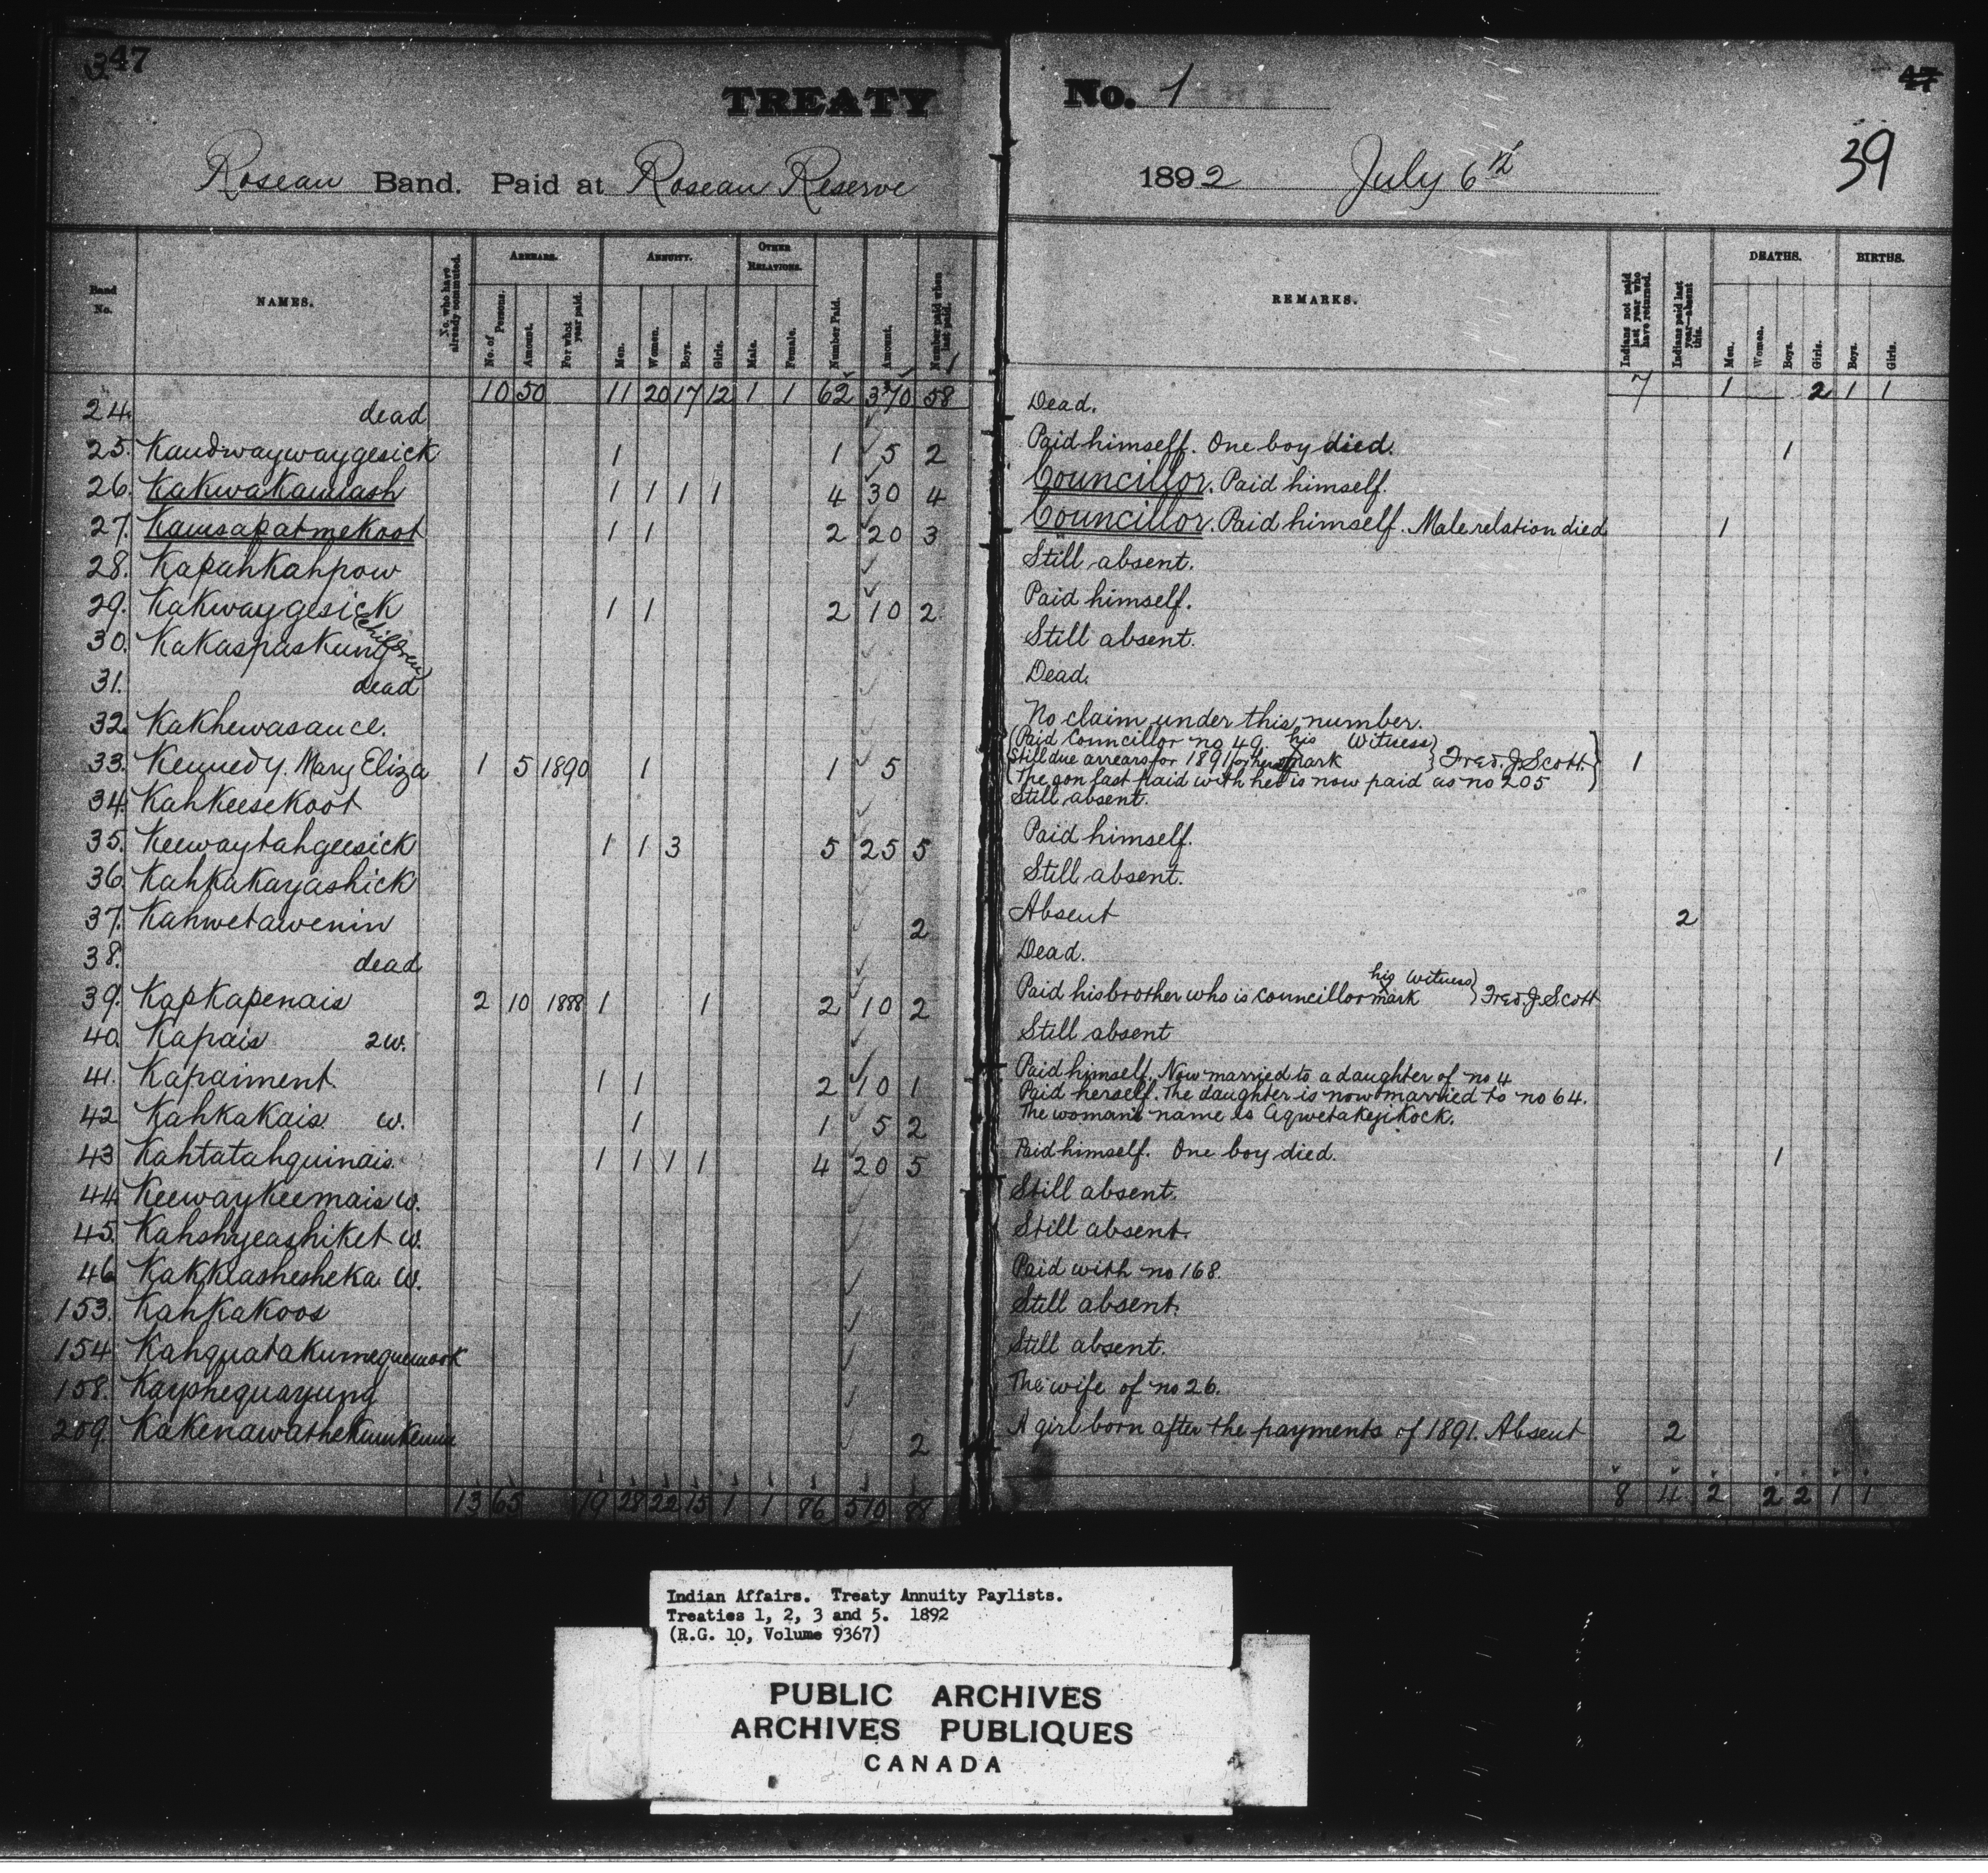 347
TREATY No. 1
47
39
Roseau Band. Paid at Roseau Reserve 1892 July 6th
Band No. NAMES. No. who have already commuted. ARREARS. No. of Persons. Amount. For what year paid. ANNUITY. Men. Women. Boys. Girls. OTHER RELATIONS. Male. Female. Number Paid. Amount. Number paid when last paid. REMARKS. Indians not paid last year who have returned. Indians paid last year—absent this. DEATHS. Men. Women. Boys. Girls. BIRTHS. Boys. Girls.
10 50 11 20 17 12 1 1 62 370 58 7 1 2 1 1
24. dead Dead.
25. Kaudwaywaygesick 1 1 5 2 Paid himself. One boy died. 1
26. Kakwakawash 1 1 1 1 4 30 4 Councillor. Paid himself.
27. Kawsapatmekoot 1 1 2 20 3 Councillor. Paid himself. Male relation died 1
28. Kapahkahpow Still absent.
29. Kakwaygesick 1 1 2 10 2 Paid himself.
30. Kakaspaskung (children) Still absent.
31. dead Dead.
32. Kakhewasauce. No claim under this number.
33. Kennedy. Mary Eliza 1 5 1890 1 1 5 (Paid Councillor no 49. his Witness} 1
Still due arrears for 1891 for her x mark } Fred. J. Scott. }
(The son last paid with her is now paid as no 205
34. Kahkeesekoot Still absent.
35. Keewaytahgeesick 1 1 3 5 25 5 Paid himself.
36. Kahkakayashick Still absent.
37. Kahwetawenin 2 Absent 2
38. dead Dead.
39. Kapkapenais 2 10 1888 1 1 2 10 2 Paid his brother who is Councillor his x mark Witness} Fred. J. Scott
40. Kapais 2w. Still absent
41. Kapaiment 1 1 2 10 1 Paid himself. Now married to a daughter of no 4
42 Kahkakais. w. 1 1 5 2 Paid herself. The daughter is now married to no 64.
The woman's name is Aqwetakejikock.
43 Kahtatahquinais. 1 1 1 1 4 20 5 Paid himself. One boy died. 1
44. Keewaykeemais w. Still absent.
45. Kahshyeashiket w. Still absent.
46 Kakkiashesheka w. Paid with no 168.
153. Kahkakoos Still absent.
154 Kahquatakumequewook Still absent.
158. Kayshequayung The wife of no 26.
209. 2 A girl born after the payments of 1891. Absent 2
13 65 19 28 22 15 1 1 86 510 88 8 4 2 2 2 1 1
Indian Affairs. Treaty Annuity Paylists.
Treaties 1, 2, 3 and 5. 1892
(R.G. 10, Volume 9367)
PUBLIC ARCHIVES
ARCHIVES PUBLIQUES
CANADA